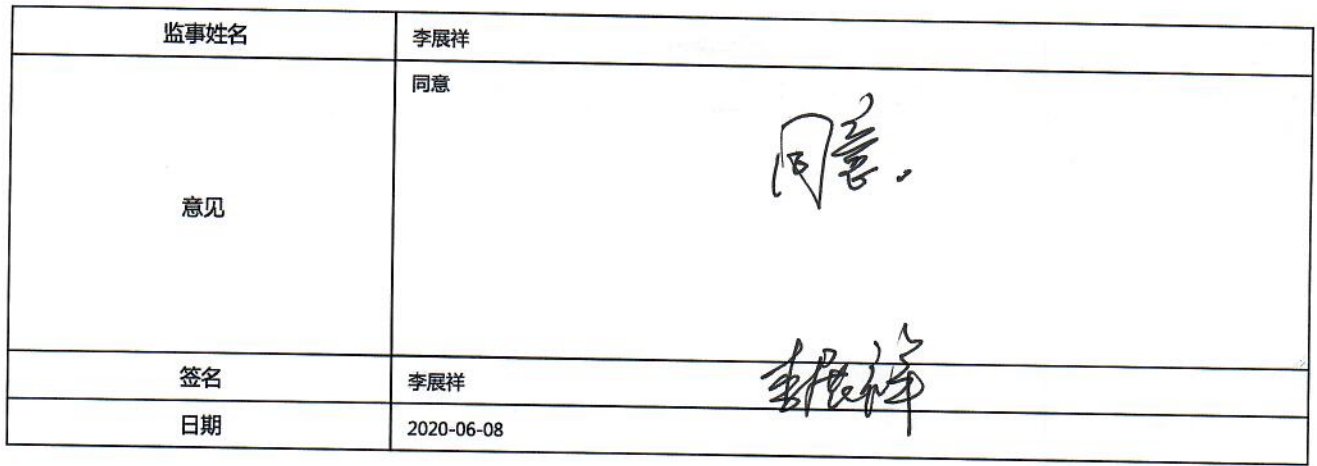 监事姓名 李展祥
意见 同意
同意。
签名 李展祥 李展祥
日期 2020-06-08